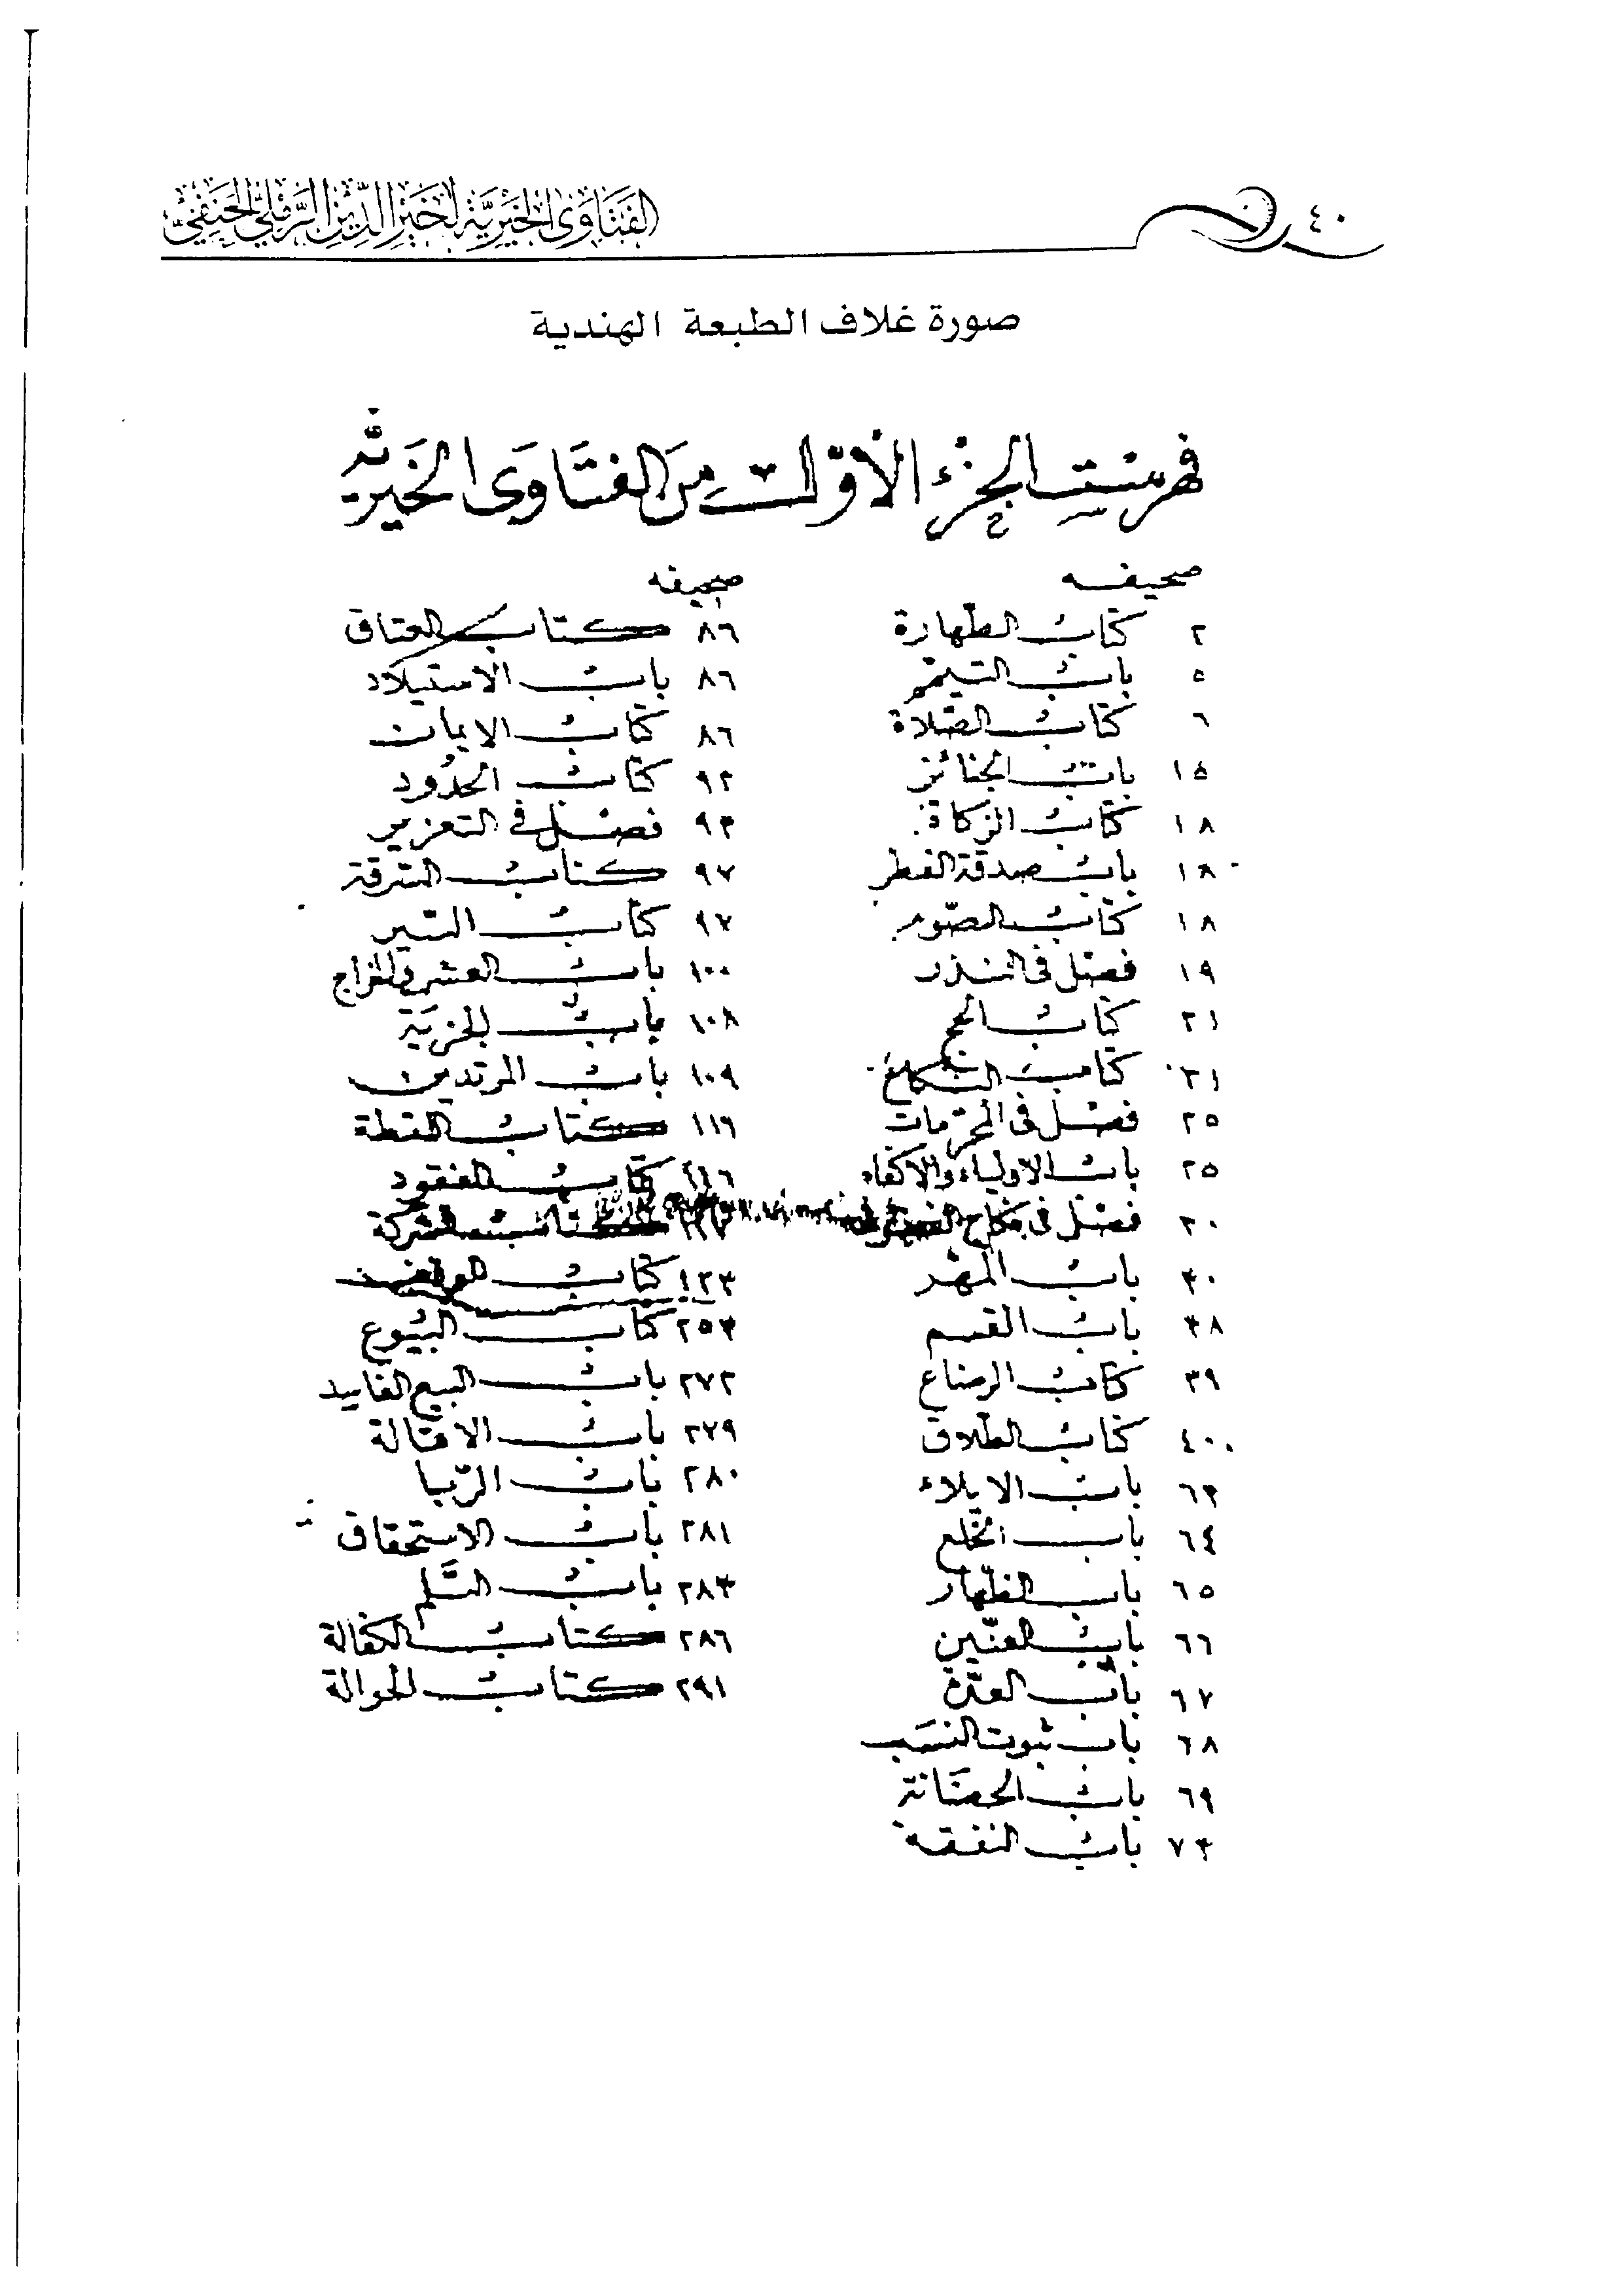 ٤٠
الفتاوى الخيرية لخير الدين الرملي الحنفي
صورة غلاف الطبعة الهندية
فهرست الجزء الأول من الفتاوى الخيرية
صحيفه
٢ كتاب الطهارة
٥ باب التيمم
٦ كتاب الصلاة
١٥ باب الجنائز
١٨ كتاب الزكاة
١٨ باب صدقة الفطر
١٨ كتاب الصوم
١٩ فصل فى النذر
٢١ كتاب الحج
٢١ كتاب النكاح
٢٥ فصل فى المحرمات
٢٥ باب الاولياء والاكفاء
٣٠ فصل فى نكاح
٣٠ باب المهر
٣٨ باب القسم
٣٩ كتاب الرضاع
٤٠ كتاب الطلاق
٦٣ باب الايلاء
٦٤ باب الخلع
٦٥ باب الظهار
٦٦ باب العنين
٦٧ باب العدة
٦٨ باب ثبوت النسب
٦٩ باب الحضانة
٧٣ باب النفقة
صحيفه
٨٦ كتاب العتاق
٨٦ باب الاستيلاد
٨٦ كتاب الايمان
٩٢ كتاب الحدود
٩٣ فصل فى التعزير
٩٧ كتاب السرقة
٩٧ كتاب السير
١٠٠ باب العشر والخراج
١٠٨ باب الجزية
١٠٩ باب المرتدين
١١٦ كتاب اللقطة
١١٦ كتاب المفقود
كتاب الشركة
١٢٣ كتاب الوقف
٢٥٣ كتاب البيوع
٢٧٢ باب البيع الفاسد
٢٧٩ باب الاقالة
٢٨٠ باب الربا
٢٨١ باب الاستحقاق
٢٨٣ باب السلم
٢٨٦ كتاب الكفالة
٢٩١ كتاب الحوالة